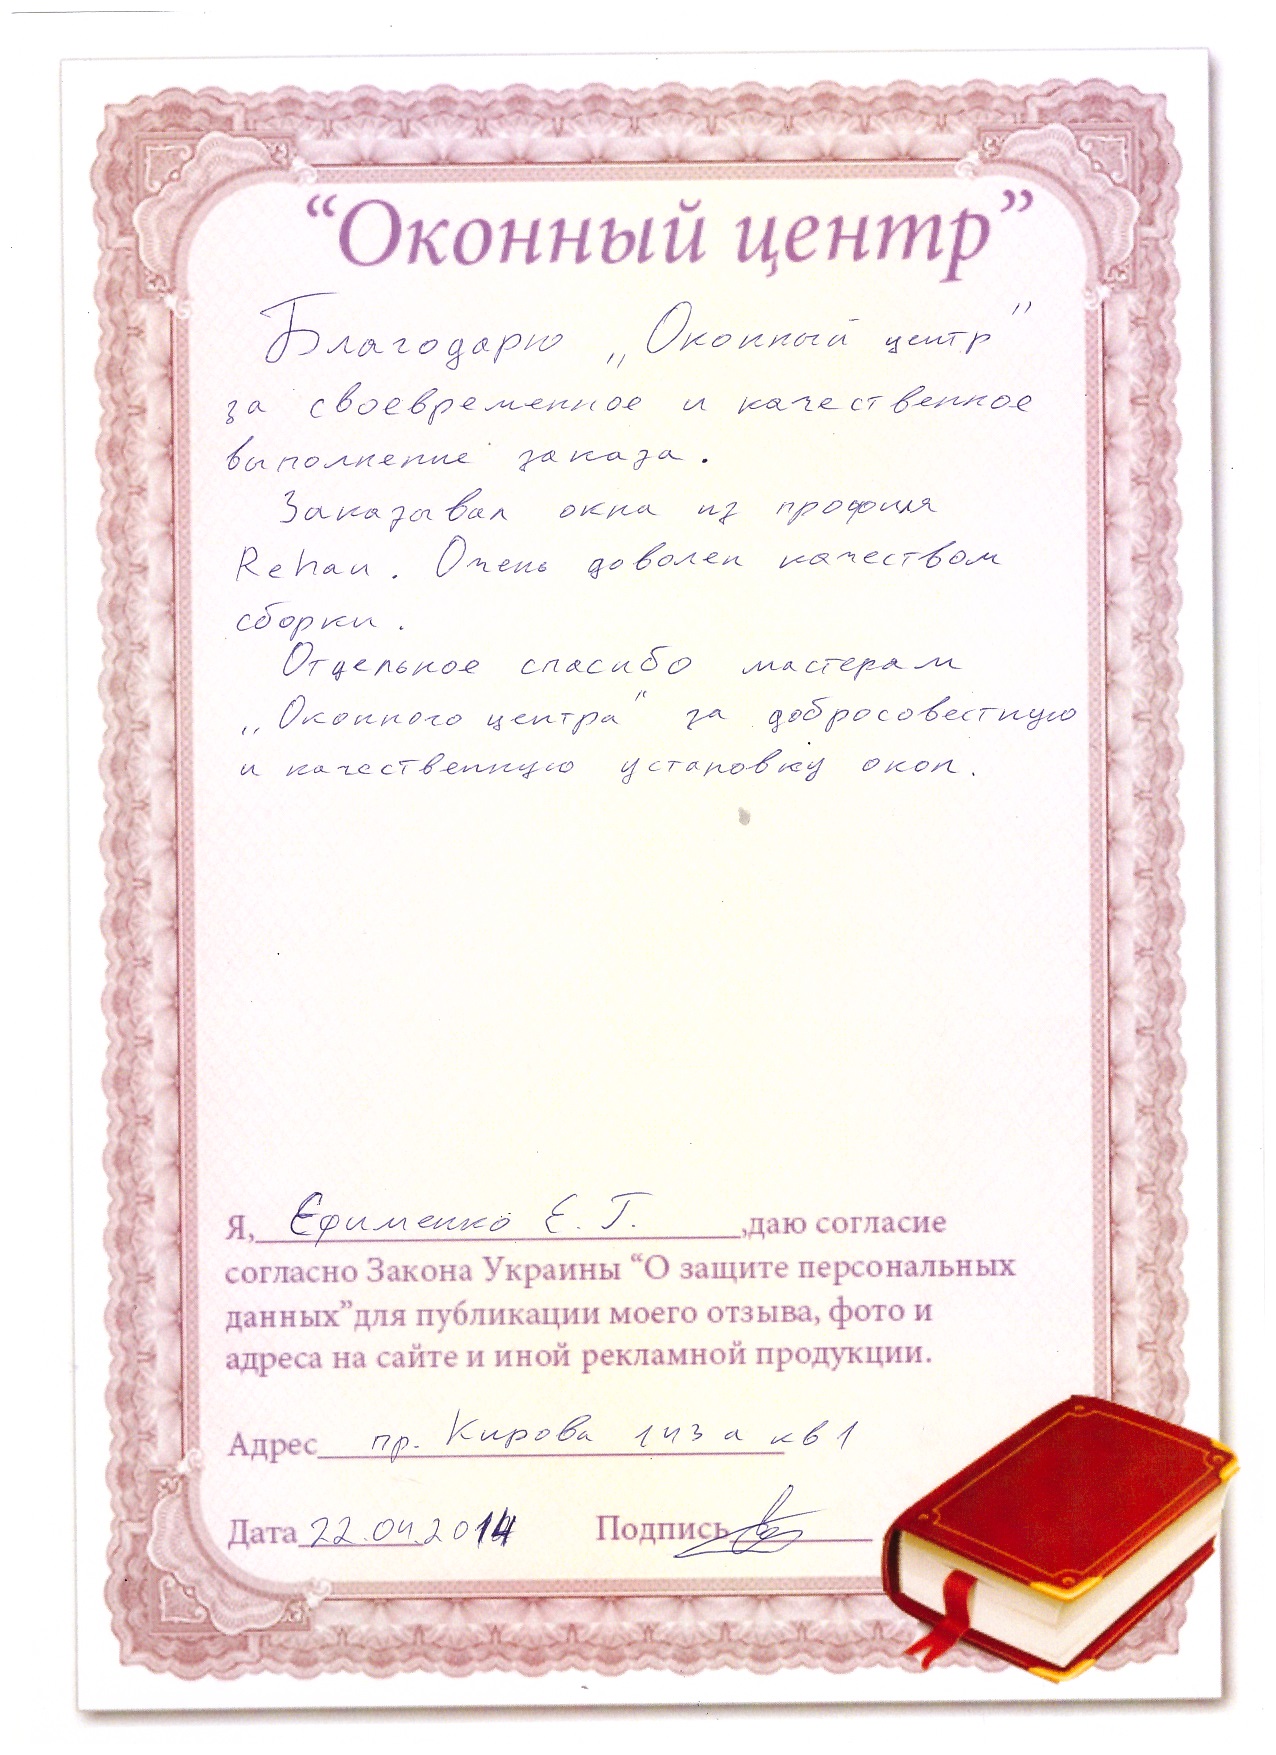 “Оконный центр”
Благодарю „Оконный центр"
за своевременное и качественное
выполнение заказа.
Заказывал окна из профиля
Rehau. Очень доволен качеством
сборки.
Отдельное спасибо мастерам
„Оконного центра" за добросовестную
и качественную установку окон.
Я, Ефименко Е. Г. ,даю согласие
согласно Закона Украины “О защите персональных
данных”для публикации моего отзыва, фото и
адреса на сайте и иной рекламной продукции.
Адрес пр. Кирова 143 а кв 1
Дата 22.04.2014 Подпись